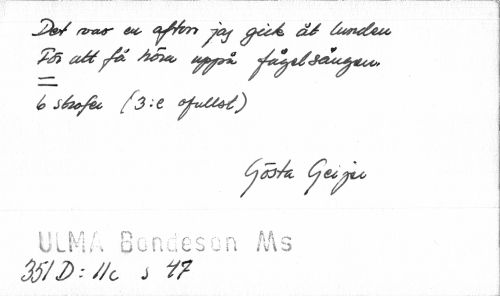 Det var en afton jag gick åt lunden
För att få höra uppå fågelsången.
=
6 strofer (3:e ofullst)
Gösta Geijer
ULMA Bondeson Ms
351 D: 11c s 47